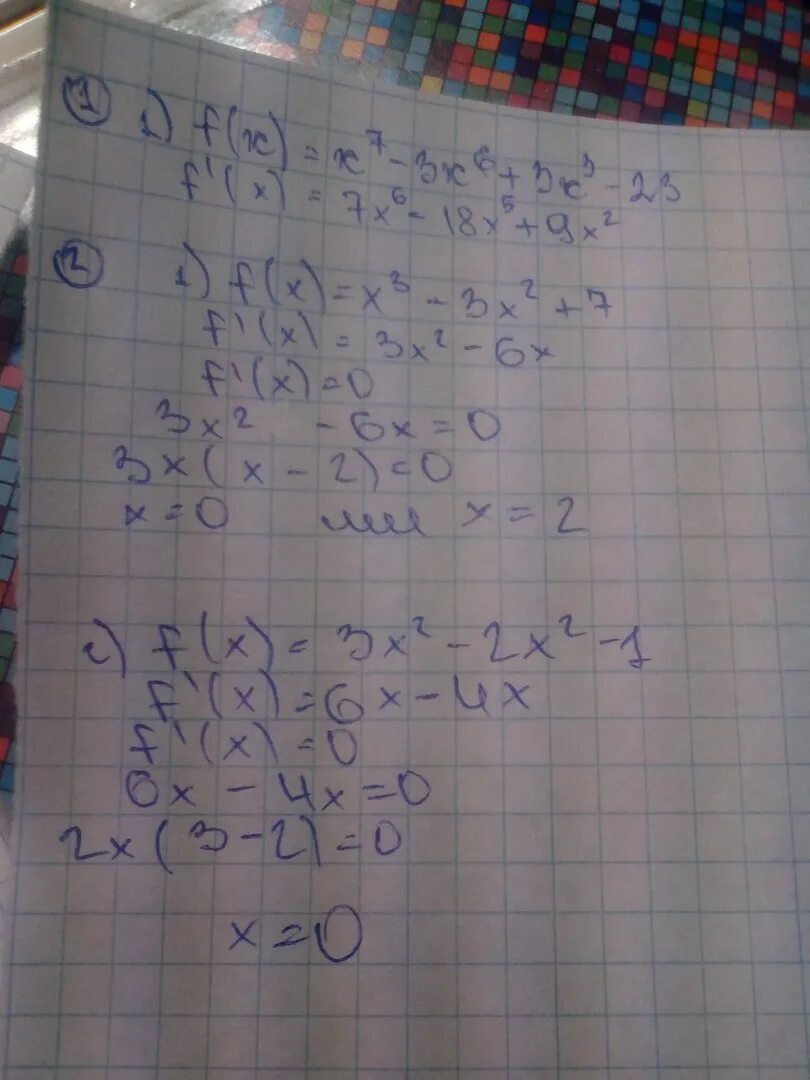 ① 1) f(x) = x⁷ - 3x⁶ + 3x³ - 23
f'(x) = 7x⁶ - 18x⁵ + 9x²
② 1) f(x) = x³ - 3x² + 7
f'(x) = 3x² - 6x
f'(x) = 0
3x² - 6x = 0
3x(x - 2) = 0
x = 0 или x = 2
2) f(x) = 3x² - 2x² - 1
f'(x) = 6x - 4x
f'(x) = 0
6x - 4x = 0
2x(3 - 2) = 0
x = 0